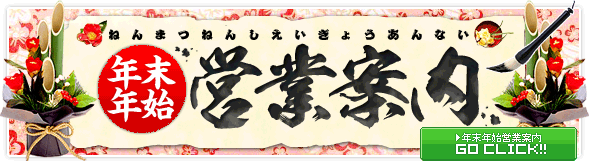 ねんまつねんしえいぎょうあんない
年末
年始
営業案内
年末年始営業案内
GO CLICK!!